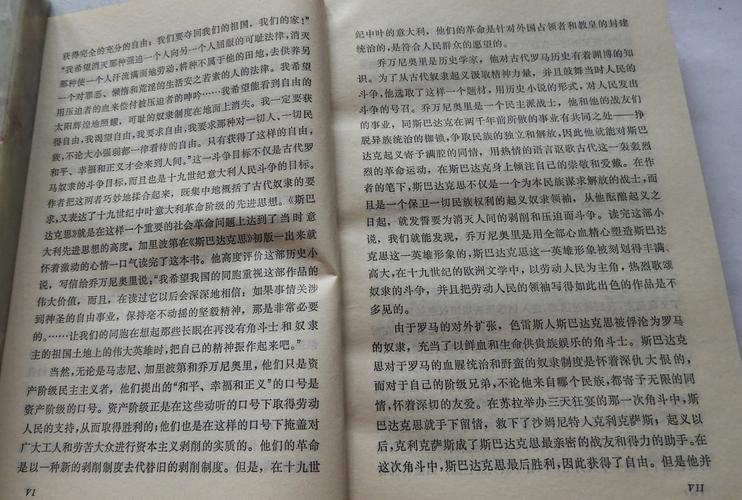 获得完全的充分的自由；我们要夺回我们的祖国，我们的家！”
“我希望消灭那种强迫一个人向另一个人屈服的可耻法律，消灭
那种使一个人汗流满面地劳动，耕种不属于他的田地，去供养另
一个对罪恶、懒惰和荒淫的生活安之若素的人的法律。我希望
用压迫者的血来偿付被压迫者的呻吟……我希望能看到自由的
太阳辉煌地照耀，可耻的奴隶制度在地面上消失。我一定要获
得自由，我渴望自由，我要求自由，我要求那种对一切人、一切民
族，不论大小强弱都一律看待的自由。只有获得了这样的自由，
和平、幸福和正义才会来到人间。”这一斗争目标不仅是古代罗
马奴隶的斗争目标，而且也是十九世纪意大利人民斗争的目标。
作者把这两者巧妙地揉合起来，既集中地概括了古代奴隶的要
求，又表达了十九世纪中叶意大利革命阶级的先进思想。《斯巴
达克思》就是在这样一个重要的社会革命问题上达到了当时意
大利先进思想的高度。加里波第在《斯巴达克思》初版一出来就
怀着激动的心情一口气读完了这本书。他高度评价这部历史小
说，写信给乔万尼奥里说：“我希望我国的同胞重视这部作品的
伟大价值，而且，在读过它以后会深深地相信：如果事情关涉
到神圣的自由事业，保持毫不动摇的坚毅精神，那是非常必要
的。……让我们的同胞在想起那些长眠在再没有角斗士和奴隶
主的祖国土地上的伟大英雄时，把自己的精神振作起来吧。”
当然，无论是马志尼、加里波第和乔万尼奥里，他们只是资
产阶级民主主义者，他们提出的“和平、幸福和正义”的口号是
资产阶级的口号。资产阶级正是在这些动听的口号下取得劳动
人民的支持，从而取得胜利的；他们也是在这样的口号下掩盖对
广大工人和劳苦大众进行资本主义剥削的实质的。他们的革命
是以一种新的剥削制度去代替旧的剥削制度。但是，在十九世
VI
纪中叶的意大利，他们的革命是针对外国占领者和教皇的封建
统治的，是符合人民群众的愿望的。
乔万尼奥里是历史学家，他对古代罗马历史有着渊博的知
识。为了从古代奴隶起义汲取精神力量，并且鼓舞当时人民的
斗争，他选取了这样一个题材，用历史小说的形式，对人民发出
斗争的号召。乔万尼奥里是一个民主派战士，他和他的战友们
的事业，同斯巴达克思在两千年前所做的事业有共同之处——挣
脱异族统治的枷锁，争取民族的独立和解放，因此他就能对斯巴
达克思起义寄予满腔的同情，用热情的语言讴歌古代这一轰轰烈
烈的革命运动，在斯巴达克思身上倾注自己的崇敬和爱戴。在作
者的笔下，斯巴达克思不仅是一个为本民族谋求解放的战士，而
且是一个保卫一切民族权利的起义奴隶领袖，从他酝酿起义之
日起，就发誓要为消灭人间的剥削和压迫而斗争。读完这部小
说，我们就能发现，乔万尼奥里是用全部心血精心塑造斯巴达克
思这一英雄形象的，斯巴达克思这一英雄形象被刻划得丰满、
高大，在十九世纪的欧洲文学中，以劳动人民为主角，热烈歌颂
奴隶的斗争，并且把劳动人民的领袖写得如此出色的作品是不
多见的。
由于罗马的对外扩张，色雷斯人斯巴达克思被俘沦为罗马
的奴隶，充当了以鲜血和生命供贵族娱乐的角斗士。斯巴达克
思对于罗马的血腥统治和野蛮的奴隶制度是怀着深仇大恨的，
而对于自己的阶级兄弟，不论他来自哪个民族，都寄予无限的同
情，怀着深切的友爱。在苏拉举办三天狂宴的那一次角斗中，斯
巴达克思就手下留情，救下了沙姆尼特人克利克萨斯；起义以
后，克利克萨斯成了斯巴达克思最亲密的战友和得力的助手。在
这次角斗中，斯巴达克思最后胜利，因此获得了自由。但是他并
VII